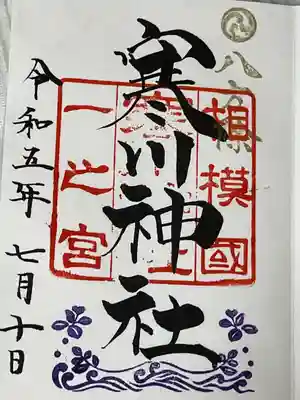 八方除
相模國
寒川神社
一之宮
令和五年 七月十日